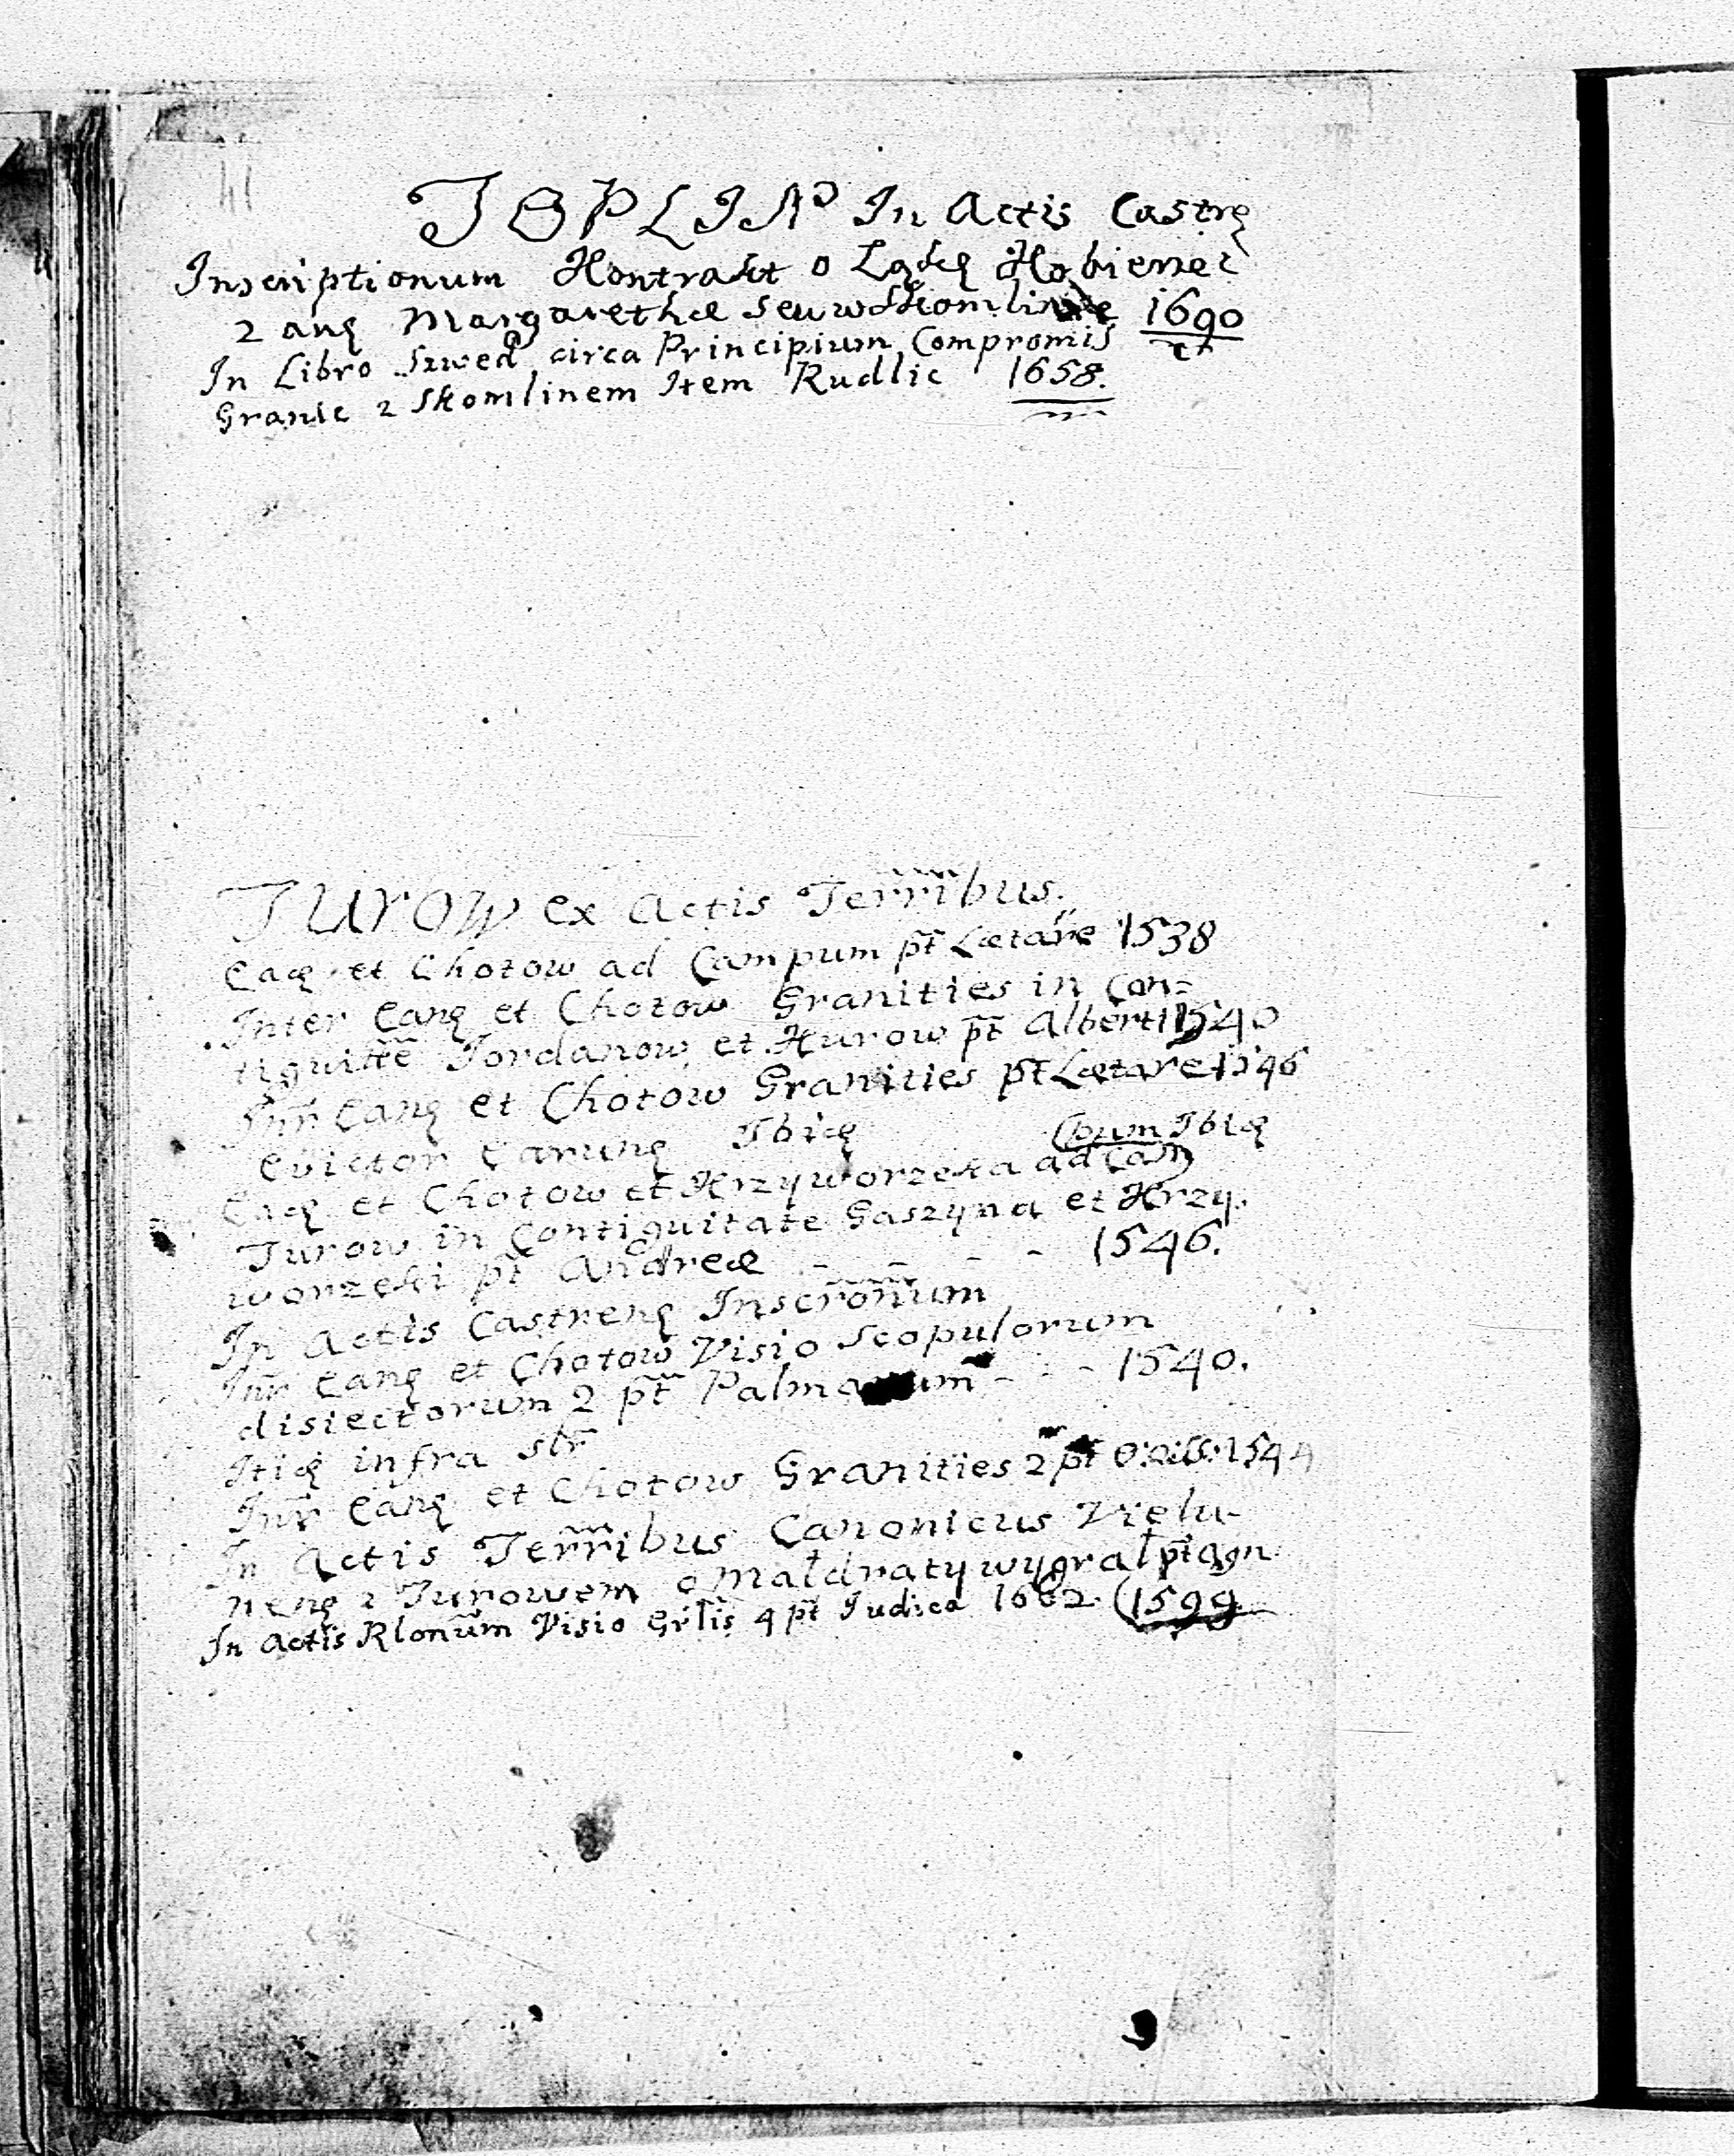 41
TOPLIN In Actis Castrę
Inscriptionum Kontrakt o Ląkę Kobierzec
2 anę Margarethæ seu w Skomlinie 1690
In Libro Szwed circa Principium Compromis
Granic z Skomlinem Item Rudlic 1658.
TUROW ex Actis Terribus.
Eaq et Chotow ad Campum pt Lætare 1538
Inter Eanq et Chotow Granities in Con=
tiguitte Jordanow et Kurow pt Alberti 1540
Intr Eanq et Chotow Granities pt Lætare 1546
Evictor Earunq Ibiq
Eaq et Chotow et Krzyworzeka ad Cam
(pum Ibiq
Turow in Contiguitate Gaszyna et Krzy.
worzeki pt Andreæ - - - 1546.
In Actis Castrenq Inscronum
Intr Eanq et Chotow Visio Scopulorum
disiectorum 2 pt Palmarum - - 1540.
Itiq infra str
Intr Eanq et Chotow Granities 2 pt 1544
In Actis Terribus Canonicus Vielu-
nenq z Turowem o Maldraty wygral pt Agn
In Actis Rlonum Visio Grlis 4 pt Judica 1662. (1599.